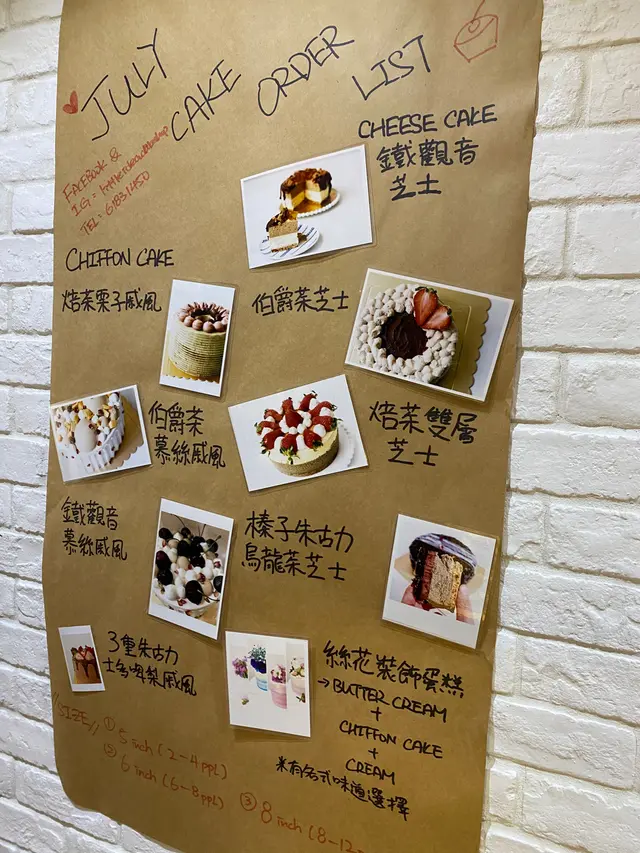 JULY CAKE ORDER LIST
FACEBOOK &
IG:
TEL: 61831450
CHEESE CAKE
鐵觀音
芝士
伯爵茶芝士
焙茶雙層
芝士
榛子朱古力
烏龍茶芝士
CHIFFON CAKE
焙茶栗子戚風
伯爵茶
慕絲戚風
鐵觀音
慕絲戚風
3重朱古力
士多啤梨戚風
絲花裝飾蛋糕
→ BUTTER CREAM
+
CHIFFON CAKE
+
CREAM
有各式味道選擇
//SIZE//
① 5 inch (2-4 ppl)
② 6 inch (6-8 ppl)
③ 8 inch (8-12